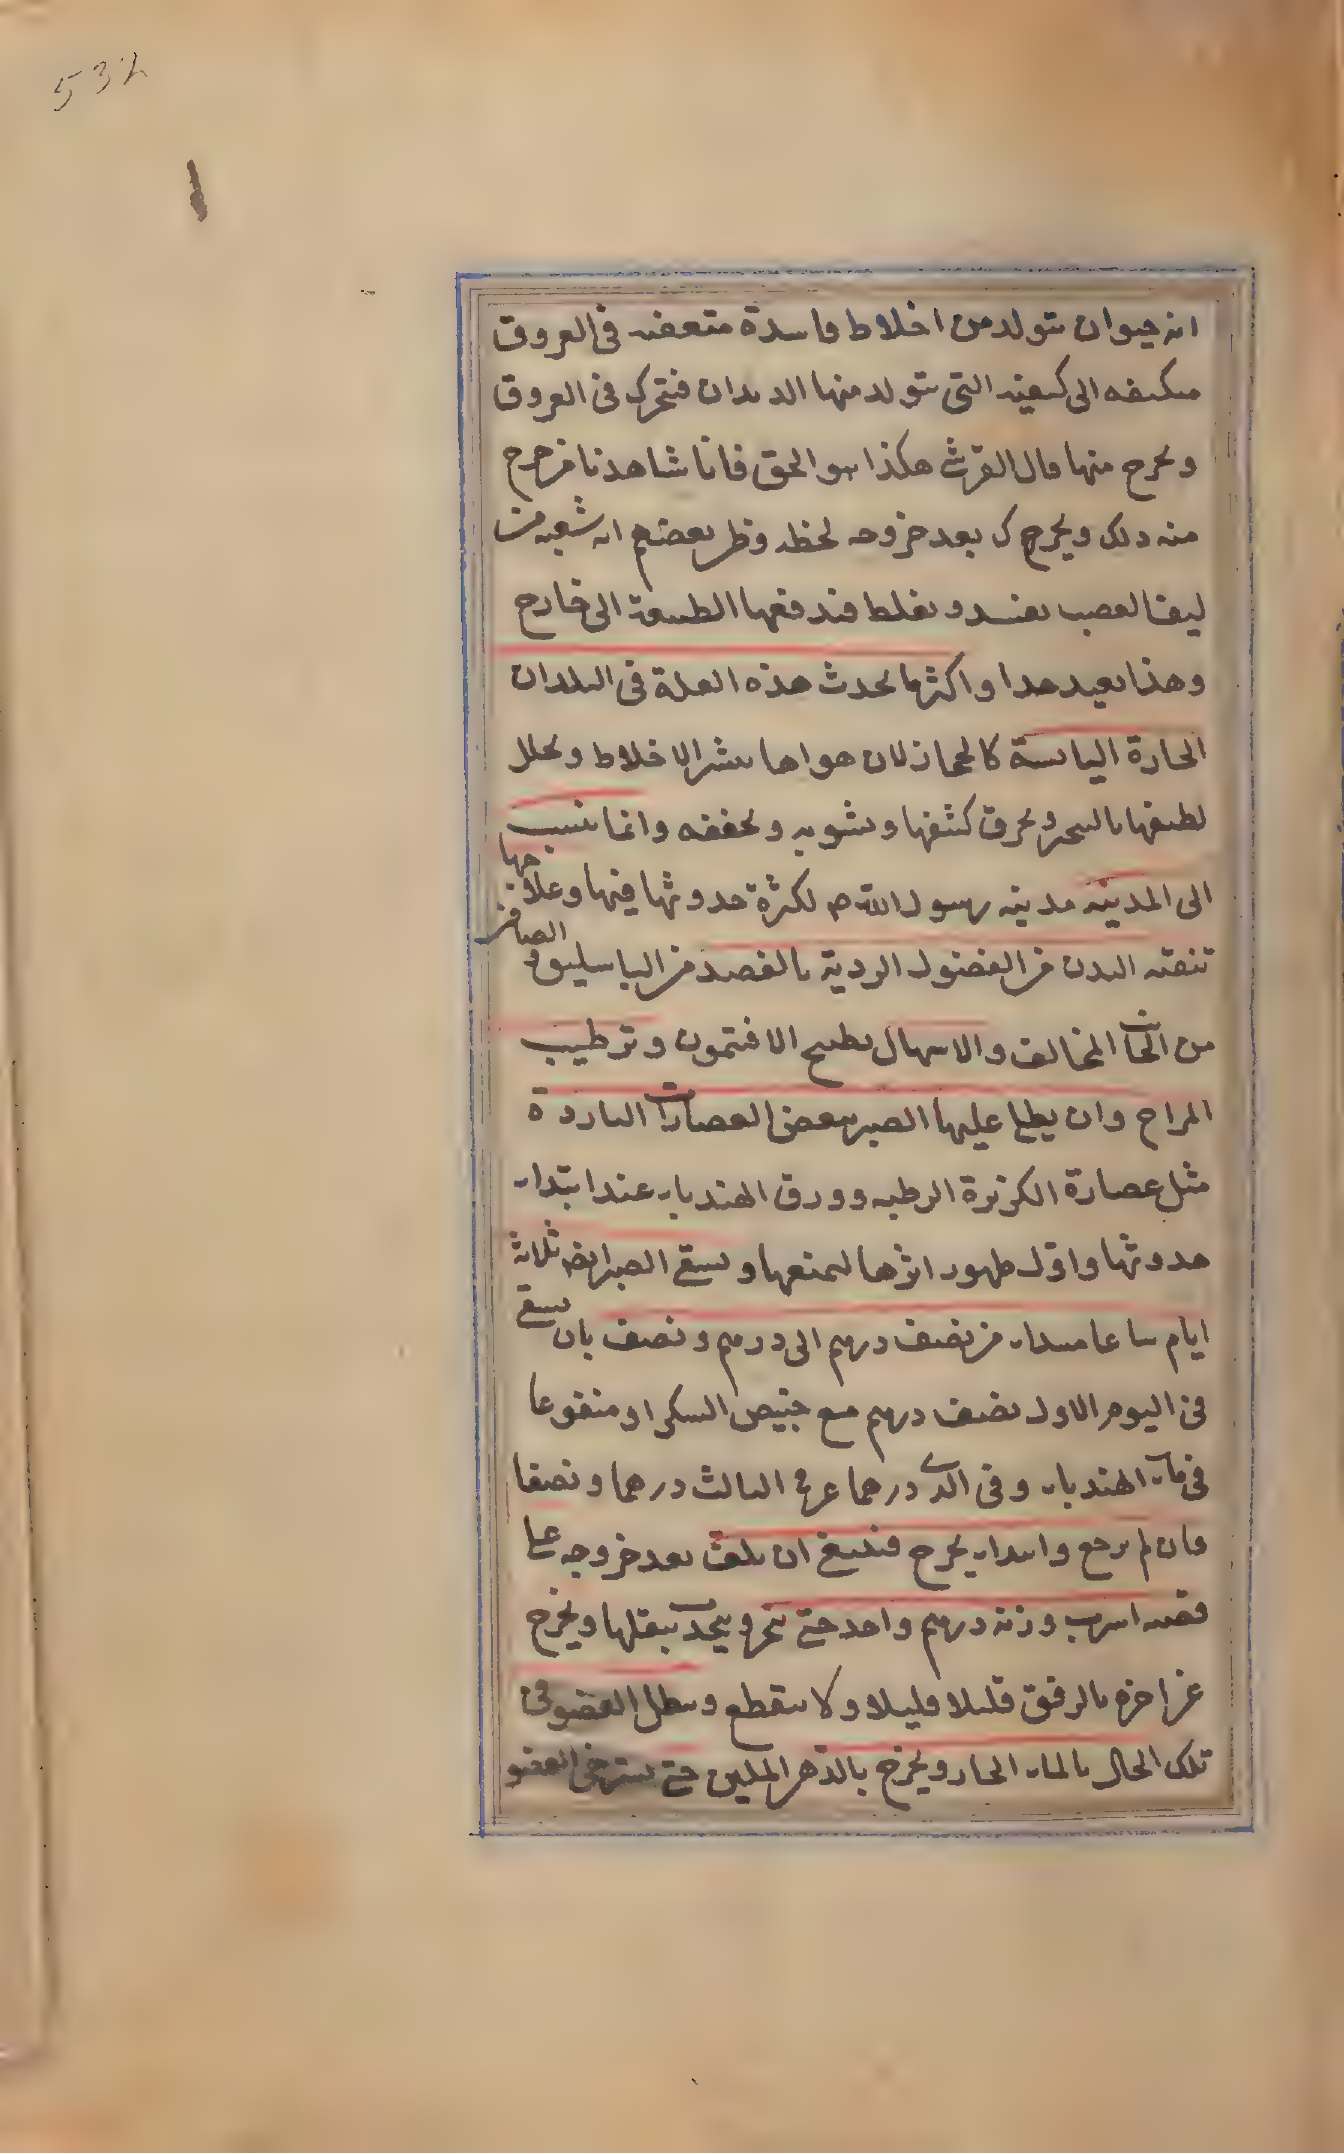 532
انه حيوان يتولد من اخلاط فاسدة متعفنه فى العروق
متكيفه الى كيفية التى يتولد منها الديدان فتتحرك فى العروق
ويخرج منها قال القرشى هكذا هو الحق فانا شاهدنا من خرج
منه ذلك ويتحرك بعد خروجه لحظه وظن بعضهم انه شعبة من
ليف العصب يفسد ويغلظ فيدفعها الطبيعة الى خارج
وهذا بعيد جدا واكثر ما يحدث هذه العلة فى البلدان
الحارة اليابسة كالحجاز لان هواها الاخلاط ويحلل
لطيفها بالتبخر ويحرق كثيفها ويشويه ويجففه وانما ينسب
الى المدينه مدينه رسول الله ص لكثرة حدوثها فيها وعلاجها
تنقيه البدن من الفضول الردية بالفصد من الباسليق والصافن
من الجانب المخالف والاسهال بطبيخ الافتيمون وترطيب
المزاج وان يطلى عليها الصبر ببعض العصارات الباردة
مثل عصارة الكزبرة الرطبه وورق الهندباء عند ابتداء
حدوثها واول ظهور اثرها ليمنعها ويسقى الصبر ايضا ثلاثة
ايام من نصف درهم الى درهم ونصف بان يسقى
فى اليوم الاول نصف درهم مع السكر او منقوعا
فى ماء الهندباء وفى الثانى درهما وفى الثالث درهما ونصفا
فان لم يرجع وابتداء يخرج فينبغى ان يلف بعد خروجه على
قصبه اسرب وزنه درهم واحد حتى ينجذب بثقلها ويخرج
عن اخره بالرفق قليلا قليلا ولا ينقطع وينطل العضو فى
تلك الحال بالماء الحار ويمرخ بالدهن الملين حتى يسترخى العضو